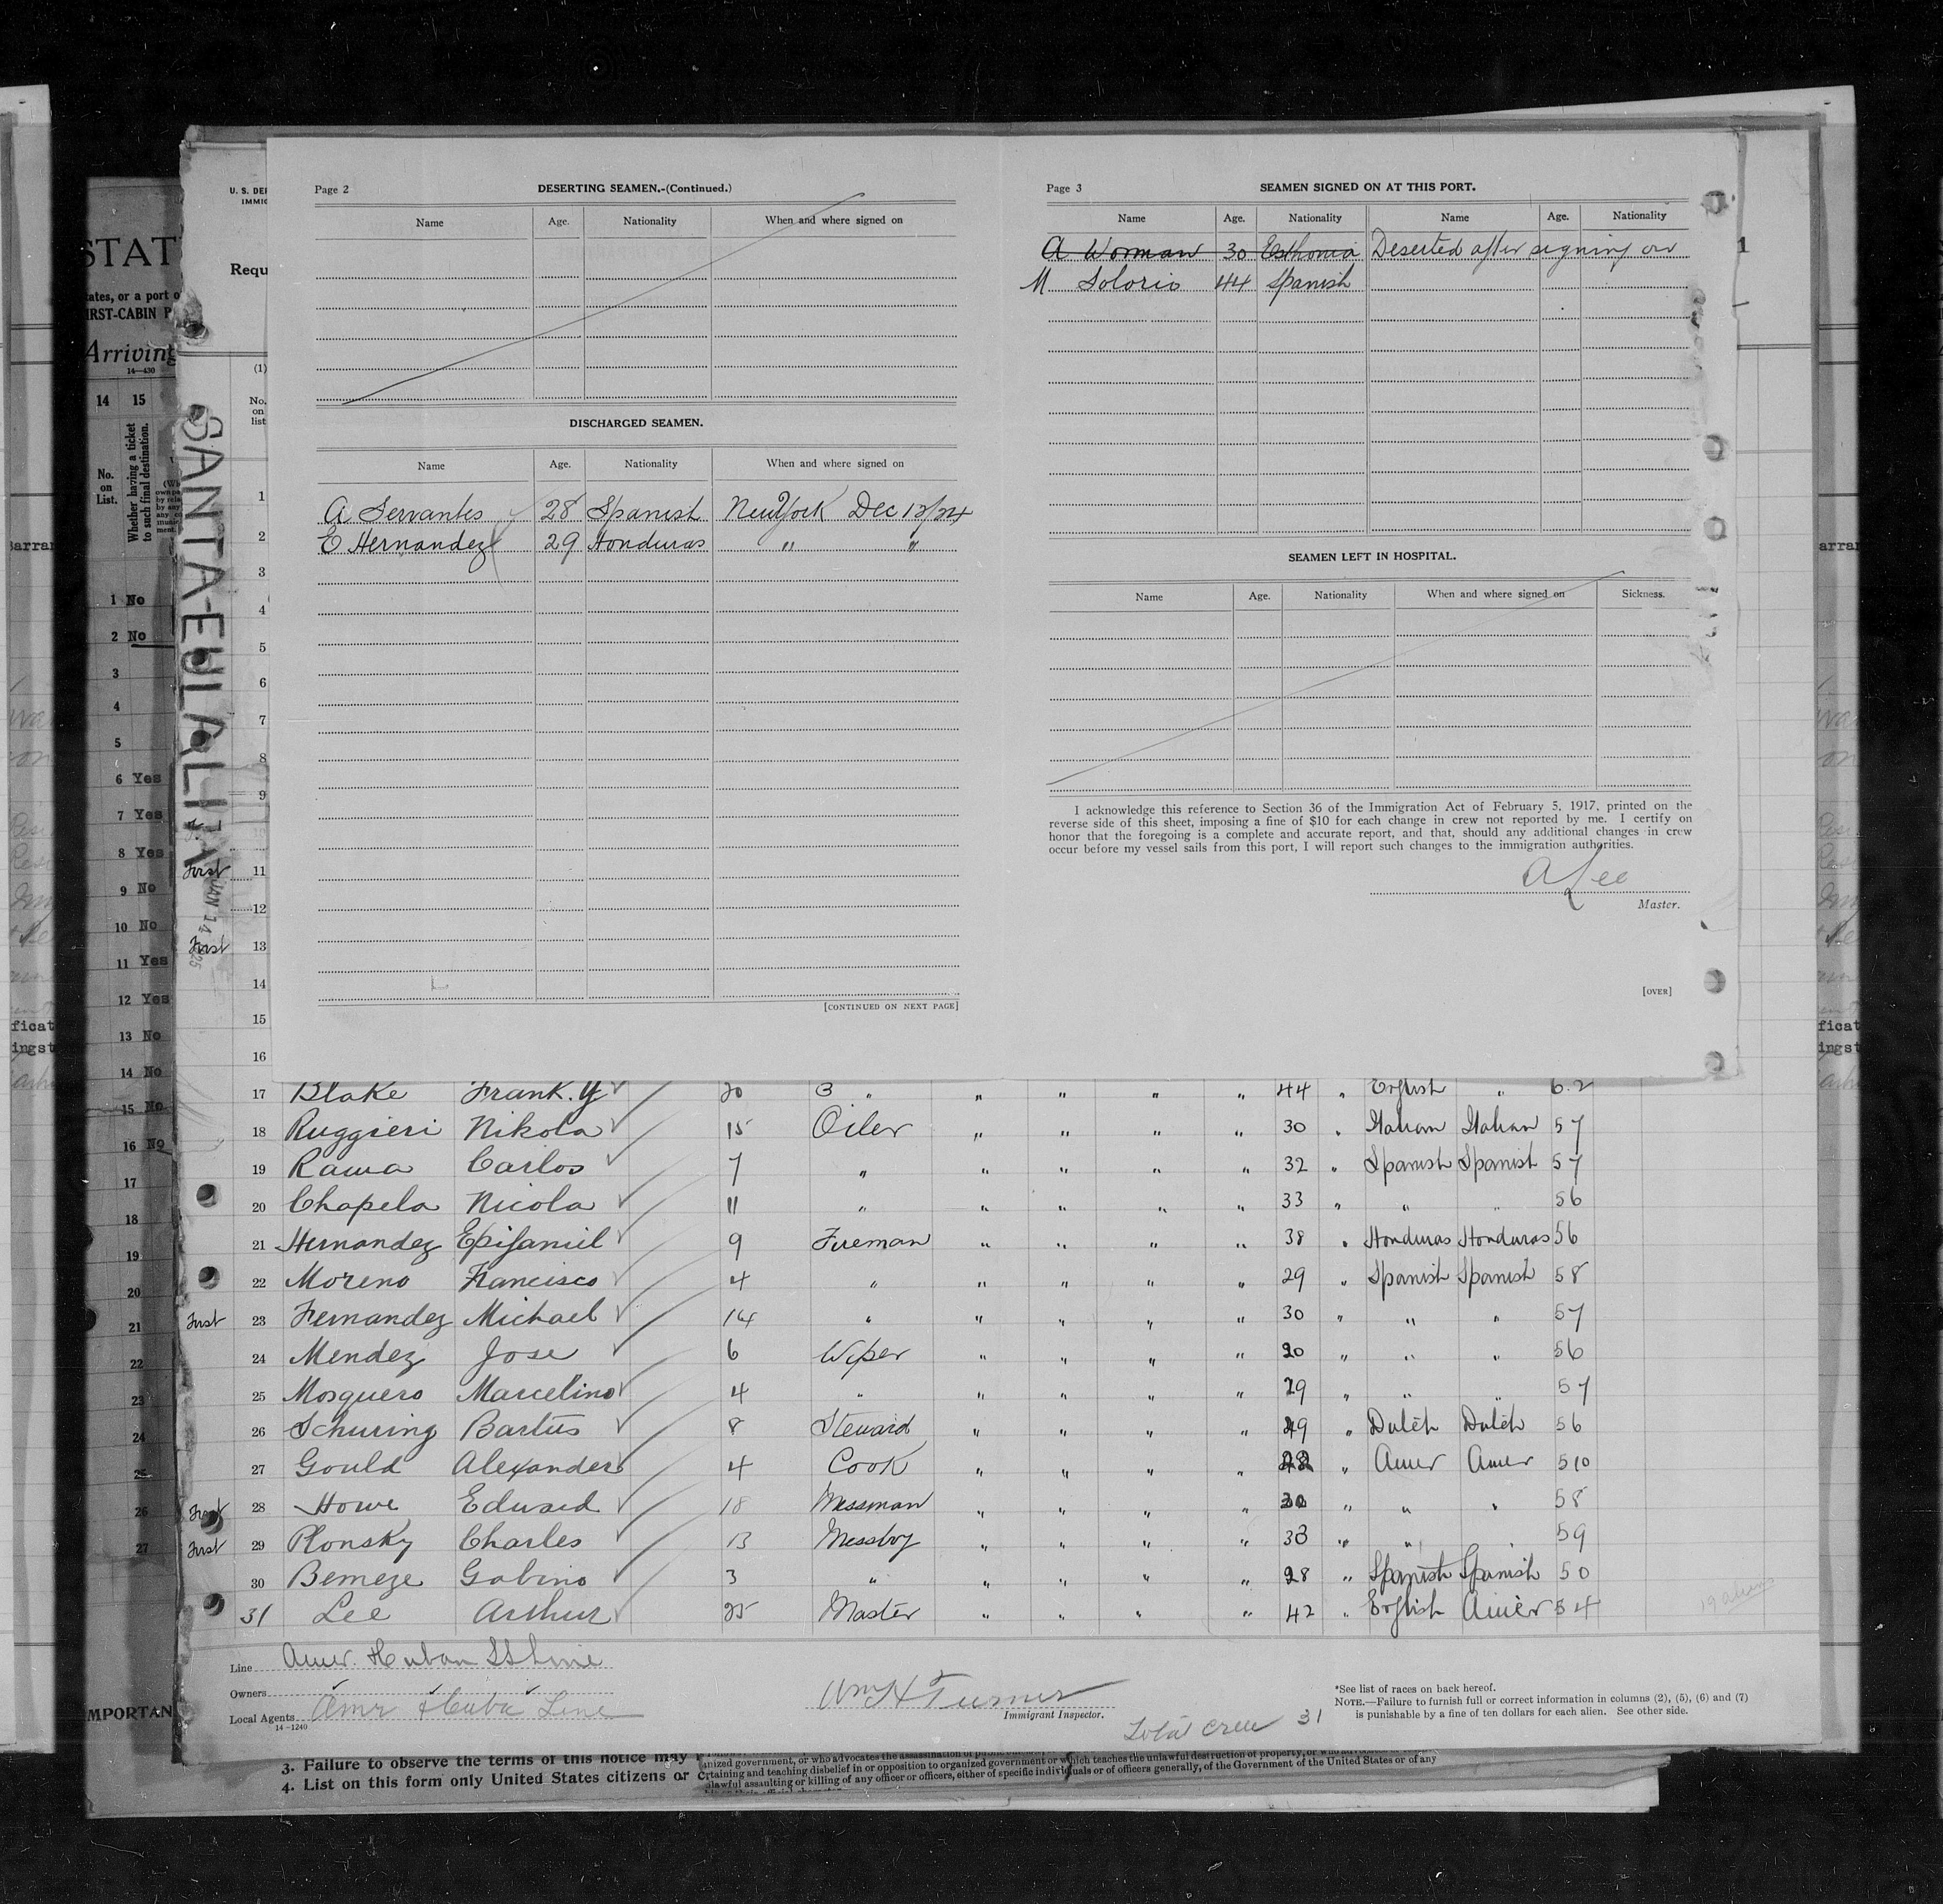 Page 2 DESERTING SEAMEN.-(Continued.)
Name Age. Nationality When and where signed on
DISCHARGED SEAMEN.
Name Age. Nationality When and where signed on
A Servantes 28 Spanish New York Dec 13/24
E Hernandez 29 Honduras " "
[CONTINUED ON NEXT PAGE]
Page 3 SEAMEN SIGNED ON AT THIS PORT.
Name Age. Nationality Name Age. Nationality
A Worman 30 Esthonia Deserted after signing on
M Solorio 44 Spanish
SEAMEN LEFT IN HOSPITAL.
Name Age. Nationality When and where signed on Sickness.
I acknowledge this reference to Section 36 of the Immigration Act of February 5, 1917, printed on the
reverse side of this sheet, imposing a fine of $10 for each change in crew not reported by me. I certify on
honor that the foregoing is a complete and accurate report, and that, should any additional changes in crew
occur before my vessel sails from this port, I will report such changes to the immigration authorities.
A Lee
Master.
[OVER]
U. S. DE
IMMIG
Requ
(1)
No.
on
list
SANTA EULALIA
JAN 14 1925
1
2
3
4
5
6
7
8
9
First 11
12
First 13
14
15
16
17 Blake Frank. Y 20 3 " " " " " 44 " English " 6.2
18 Ruggieri Nikola 15 Oiler " " " " 30 " Italian Italian 57
19 Rama Carlos 7 " " " " " 32 " Spanish Spanish 57
20 Chapela Nicola 11 " " " " " 33 " " " 56
21 Hernandez Epifaniel 9 Fireman " " " " 38 " Honduras Honduras 56
22 Moreno Francisco 4 " " " " " 29 " Spanish Spanish 58
First 23 Fernandez Michael 14 " " " " " 30 " " " 57
24 Mendez Jose 6 Wiper " " " " 20 " " " 56
25 Mosquero Marcelino 4 " " " " " 29 " " " 57
26 Schuring Bartus 8 Steward " " " " 49 " Dutch Dutch 56
27 Gould Alexander 4 Cook " " " " " Amer Amer 510
First 28 Howe Edward 18 Messman " " " " 30 " " " 58
First 29 Plonsky Charles 13 Messboy " " " " 38 " " 59
30 Bemeze Gabino 3 " " " " " 28 " Spanish Spanish 50
31 Lee Arthur 25 Master " " " " 42 " English Amer 54
19 aliens
Line Amer. Huban SS Line
Owners
Local Agents Amr & Cuba Line
14-1240
Wm H Turner
Immigrant Inspector.
Total crew 31
*See list of races on back hereof.
NOTE.—Failure to furnish full or correct information in columns (2), (5), (6) and (7)
is punishable by a fine of ten dollars for each alien. See other side.
STAT
tates, or a port o
IRST-CABIN P
Arriving
14—430
14 15
No.
on
List.
Whether having a ticket
to such final destination.
1 No
2 No
3
4
5
6 Yes
7 Yes
8 Yes
9 No
10 No
11 Yes
12 Yes
13 No
14 No
15 No
16 No
17
18
19
20
21
22
23
24
25
26
27
MPORTAN
3. Failure to observe the terms of this notice may
4. List on this form only United States citizens or
nized government, or who advocates the assassination of public
which teaches the unlawful destruction of property, or who
rtaining and teaching disbelief in or opposition to organized government or
uals or of officers generally, of the Government of the United States or of any
lawful assaulting or killing of any officer or officers, either of specific individ